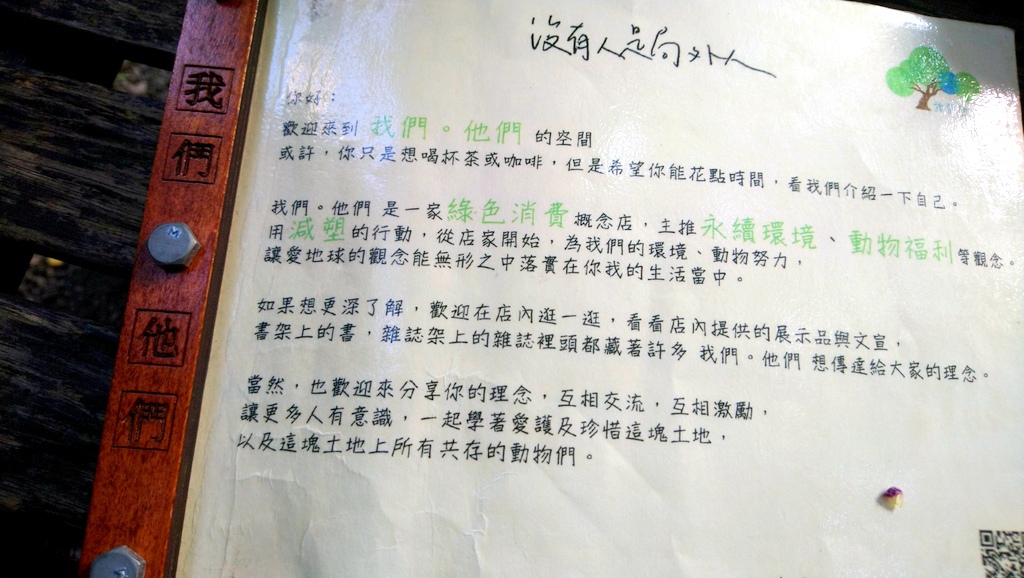 沒有人是局外人
我們
他們
你好：
歡迎來到 我們。他們 的空間
或許，你只是想喝杯茶或咖啡，但是希望你能花點時間，看我們介紹一下自己。
我們。他們 是一家綠色消費概念店，主推永續環境、動物福利等觀念。
用減塑的行動，從店家開始，為我們的環境、動物努力，
讓愛地球的觀念能無形之中落實在你我的生活當中。
如果想更深了解，歡迎在店內逛一逛，看看店內提供的展示品與文宣，
書架上的書，雜誌架上的雜誌裡頭都藏著許多 我們。他們 想傳達給大家的理念。
當然，也歡迎來分享你的理念，互相交流，互相激勵，
讓更多人有意識，一起學著愛護及珍惜這塊土地，
以及這塊土地上所有共存的動物們。